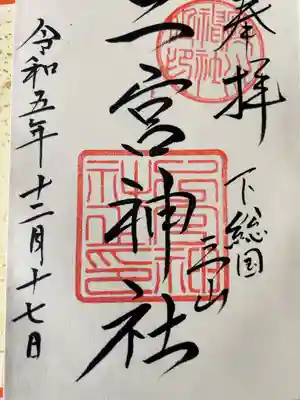 奉拝
下総国
三山
二宮神社
令和五年十二月十七日